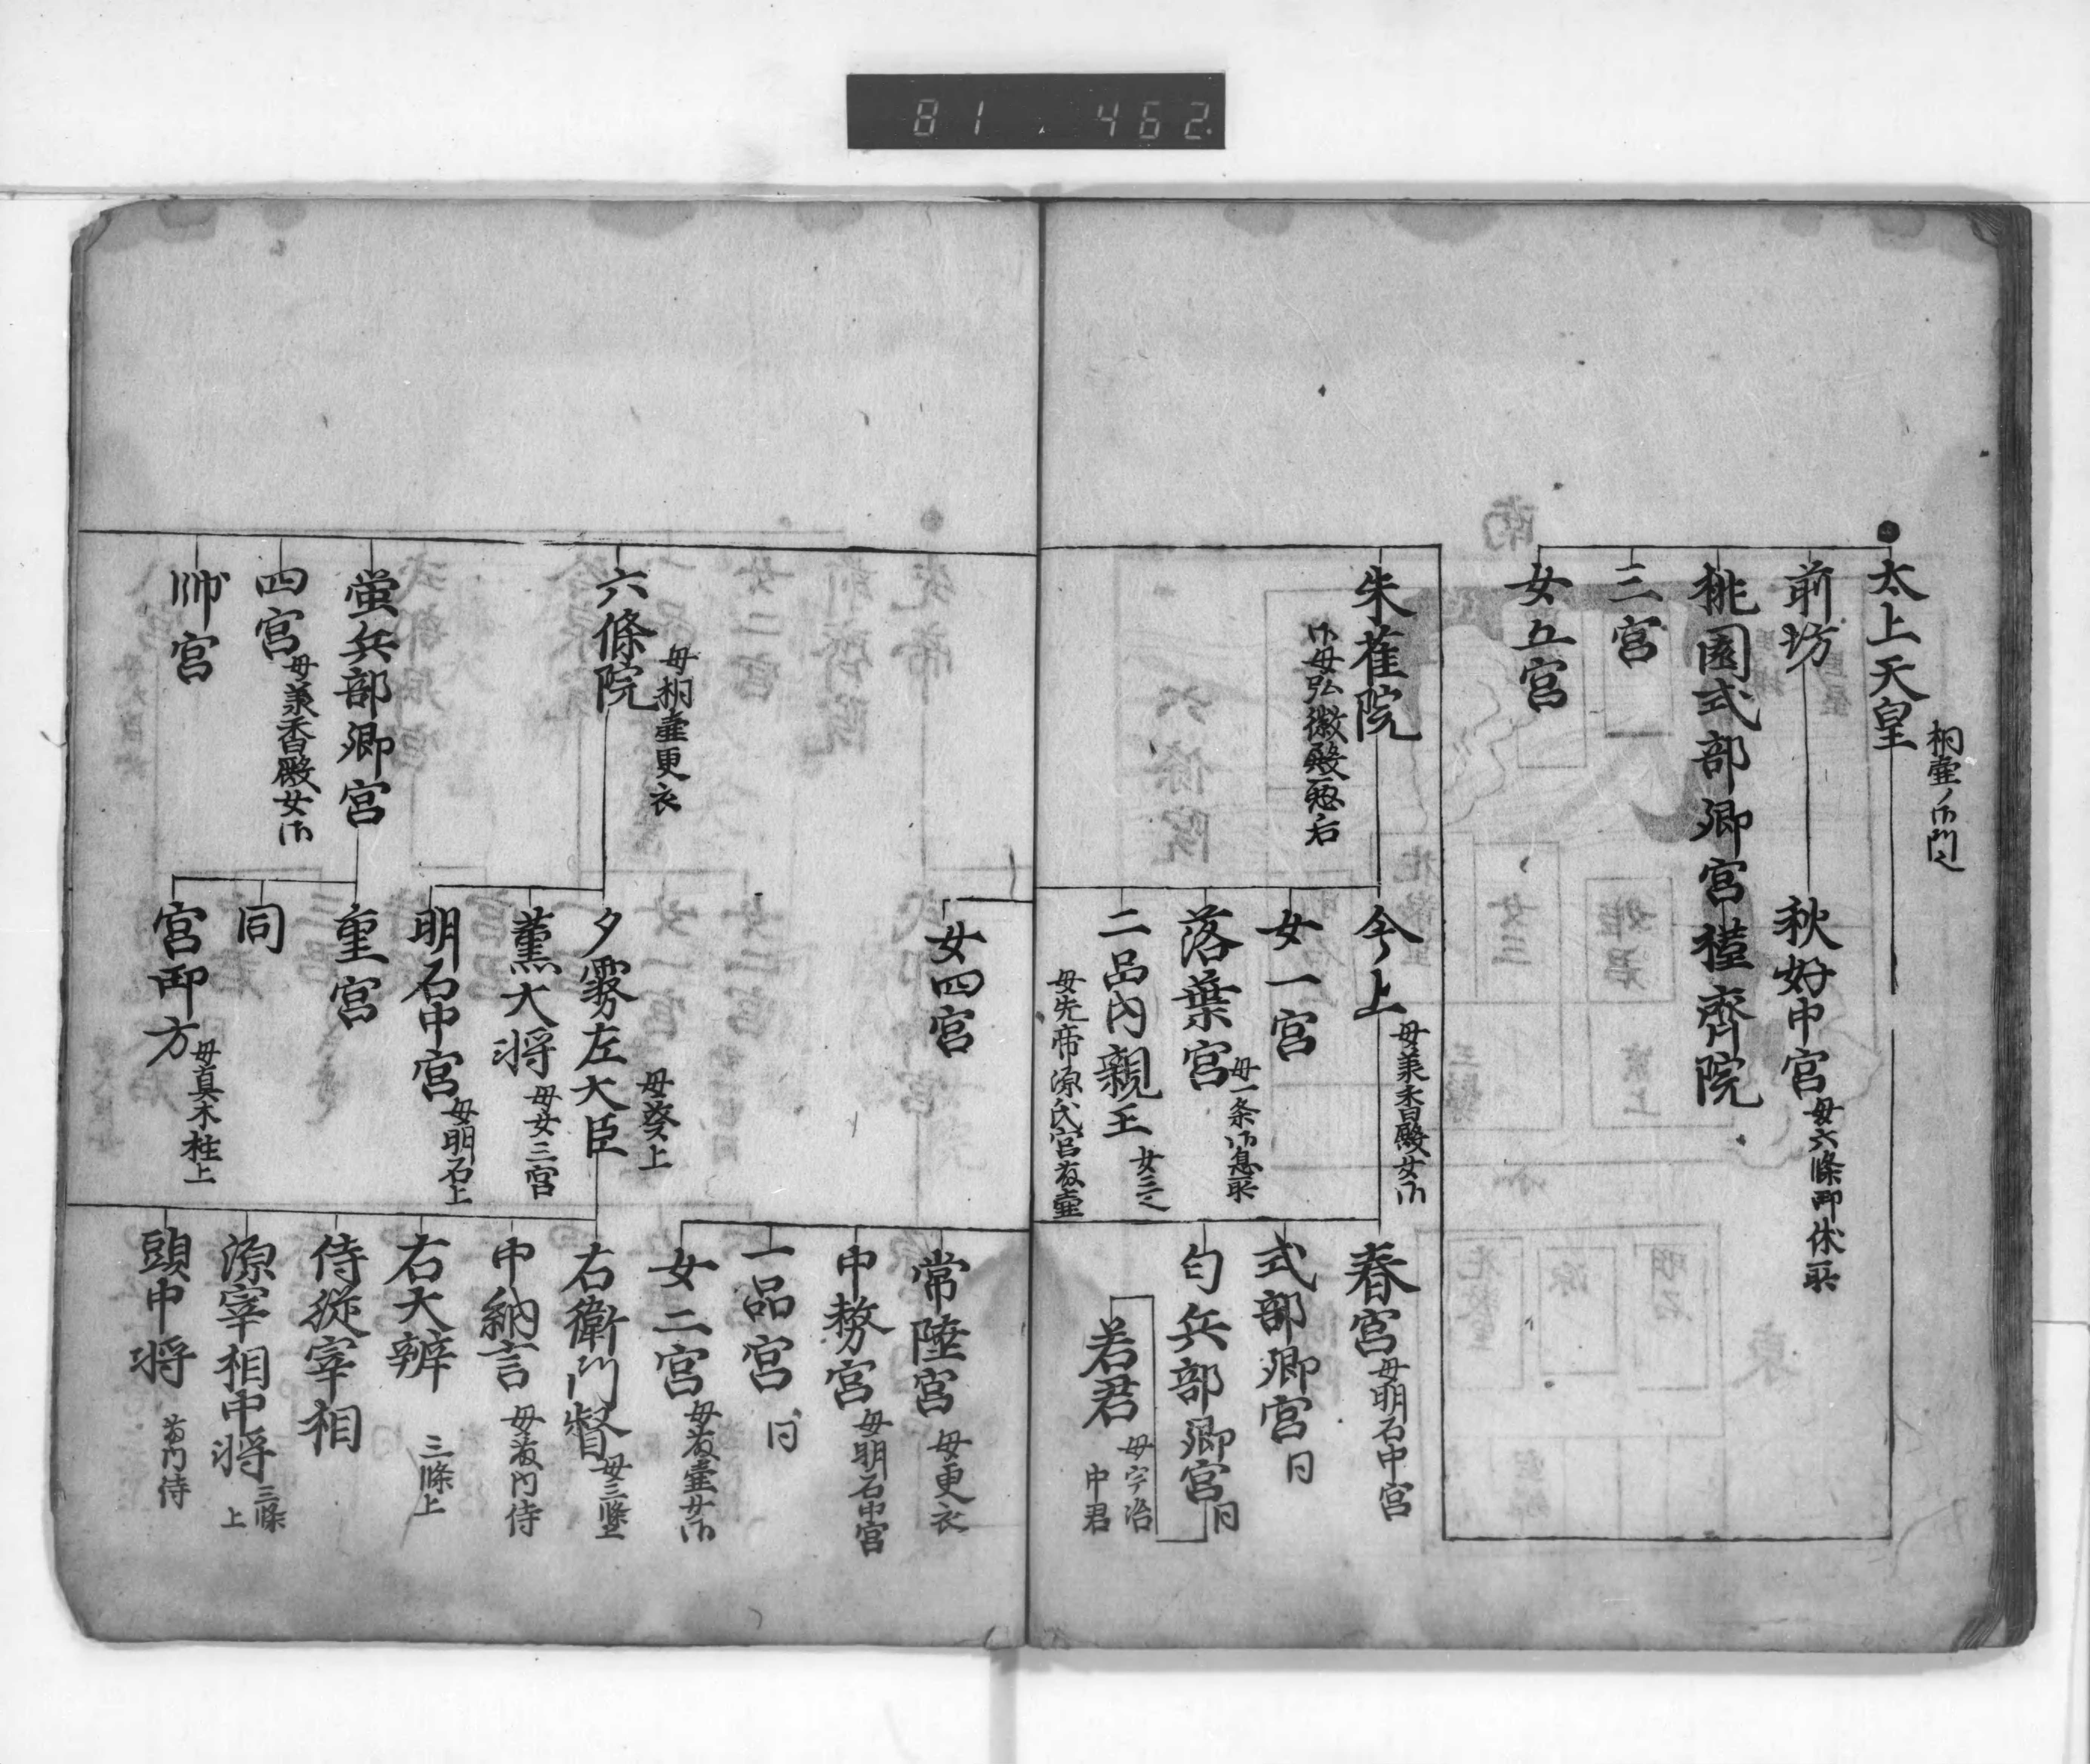 81.462.
太上天皇
桐壷ノ御門也
前坊
秋好中宮
母六條御休所
桃園式部卿宮
槿齊院
三宮
女五宮
朱雀院
御母弘徽殿悪后
今上
母承香殿女御
女一宮
落葉宮
母一条御息所
二品内親王
女三也
母先帝源氏宮藤壷
春宮
母明石中宮
式部卿宮
同
匂兵部卿宮
同
若君
母宇治
中君
女四宮
常陸宮
母更衣
中務宮
母明石中宮
一品宮
同
女二宮
母藤壷女御
六條院
母桐壷更衣
夕霧左大臣
母葵上
薫大将
母女三宮
明石中宮
母明石上
右衛門督
母三條上
中納言
母藤内侍
右大辨
三條上
侍従宰相
源宰相中将
三條
上
頭中将
藤内侍
蛍兵部卿宮
重宮
同
宮御方
母真木柱上
四宮
母承香殿女御
帥宮